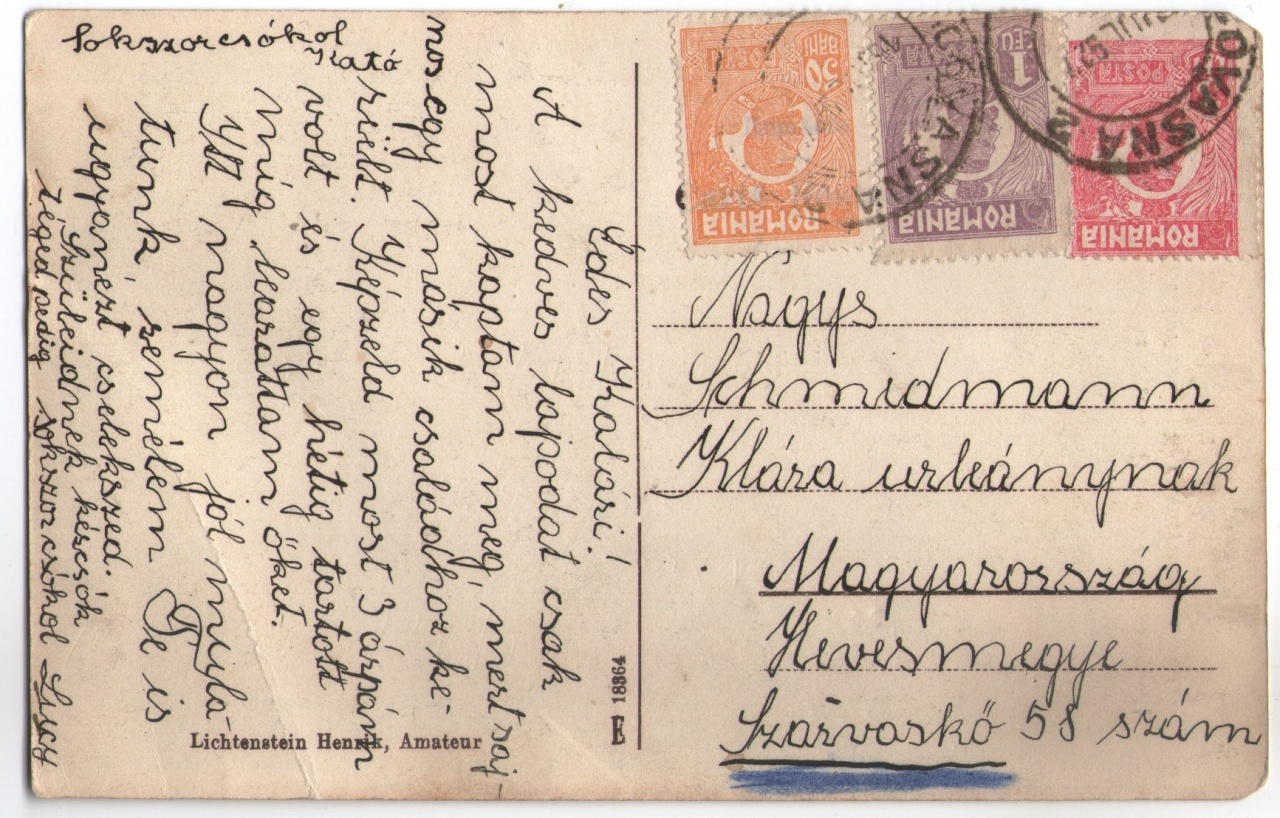 Sokszorcsókol
Kató
Édes Klári!
A kedves lapodat csak
most kaptam meg, mert saj-
nos egy másik családhoz ke-
rült. Képzeld most 3 árpám
volt és egy hétig tartott
míg learattam őket.
Itt nagyon jól mula-
tunk remélem Te is
ugyanezt cselekszed.
Szüleidnek kézcsók
téged pedig sokszor csókol Lucy
Lichtenstein Henrik, Amateur
18864
E
50
BANI
POSTA
ROMANIA
1
LEU
POSTA
ROMANIA
POSTA
ROMANIA
COVASNA
Nagys
Schmidmann
Klára urleánynak
Magyarország
Hevesmegye
Szarvaskő 58 szám